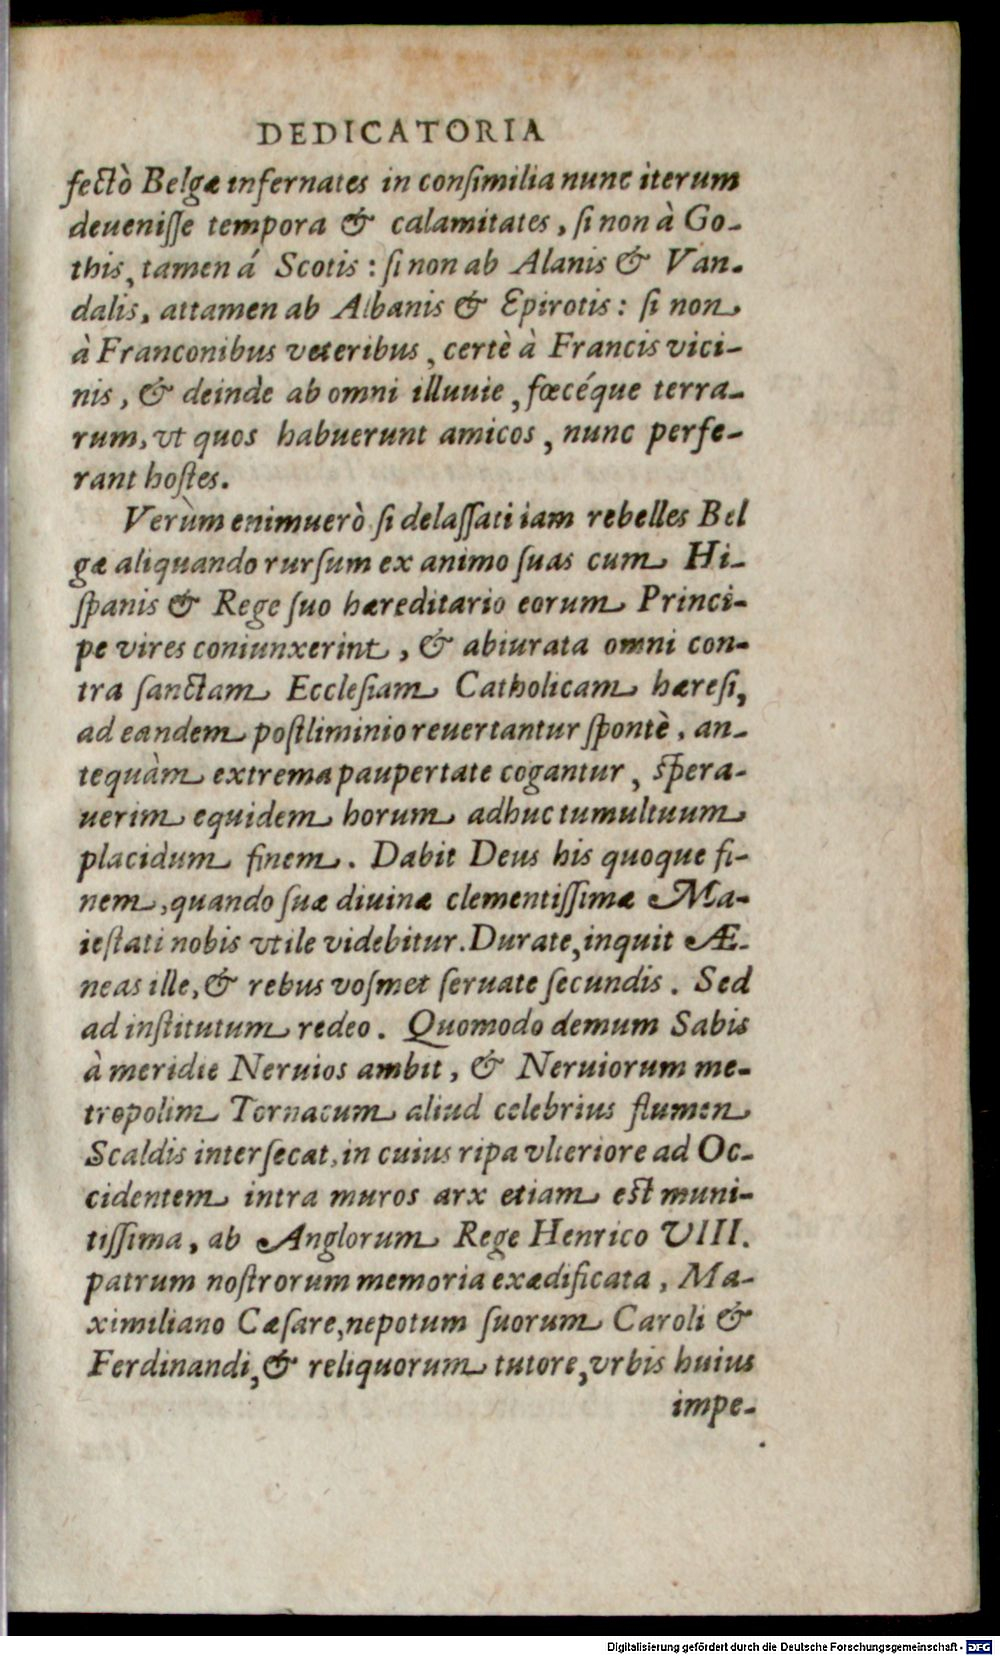 DEDICATORIA
fectò Belgæ infernates in consimilia nunc iterum
deuenisse tempora & calamitates, si non à Go-
this, tamen á Scotis: si non ab Alanis & Van-
dalis, attamen ab Albanis & Epirotis: si non
à Franconibus veteribus, certè à Francis vici-
nis, & deinde ab omni illuuie, fœcéque terra-
rum, vt quos habuerunt amicos, nunc perfe-
rant hostes.
Verùm enimuerò si delassati iam rebelles Bel
gæ aliquando rursum ex animo suas cum Hi-
spanis & Rege suo hæreditario eorum Princi-
pe vires coniunxerint, & abiurata omni con-
tra sanctam Ecclesiam Catholicam hæresi,
ad eandem postliminio reuertantur spontè, an-
tequàm extrema paupertate cogantur, spera-
uerim equidem horum adhuc tumultuum
placidum finem. Dabit Deus his quoque fi-
nem, quando suæ diuinæ clementissimæ Ma-
iestati nobis vtile videbitur. Durate, inquit Æ-
neas ille, & rebus vosmet seruate secundis. Sed
ad institutum redeo. Quomodo demum Sabis
à meridie Neruios ambit, & Neruiorum me-
tropolim Tornacum aliud celebrius flumen
Scaldis intersecat, in cuius ripa vlteriore ad Oc-
cidentem intra muros arx etiam est muni-
tissima, ab Anglorum Rege Henrico VIII.
patrum nostrorum memoria exædificata, Ma-
ximiliano Cæsare, nepotum suorum Caroli &
Ferdinandi, & reliquorum tutore, vrbis huius
impe-
Digitalisierung gefördert durch die Deutsche Forschungsgemeinschaft - DFG